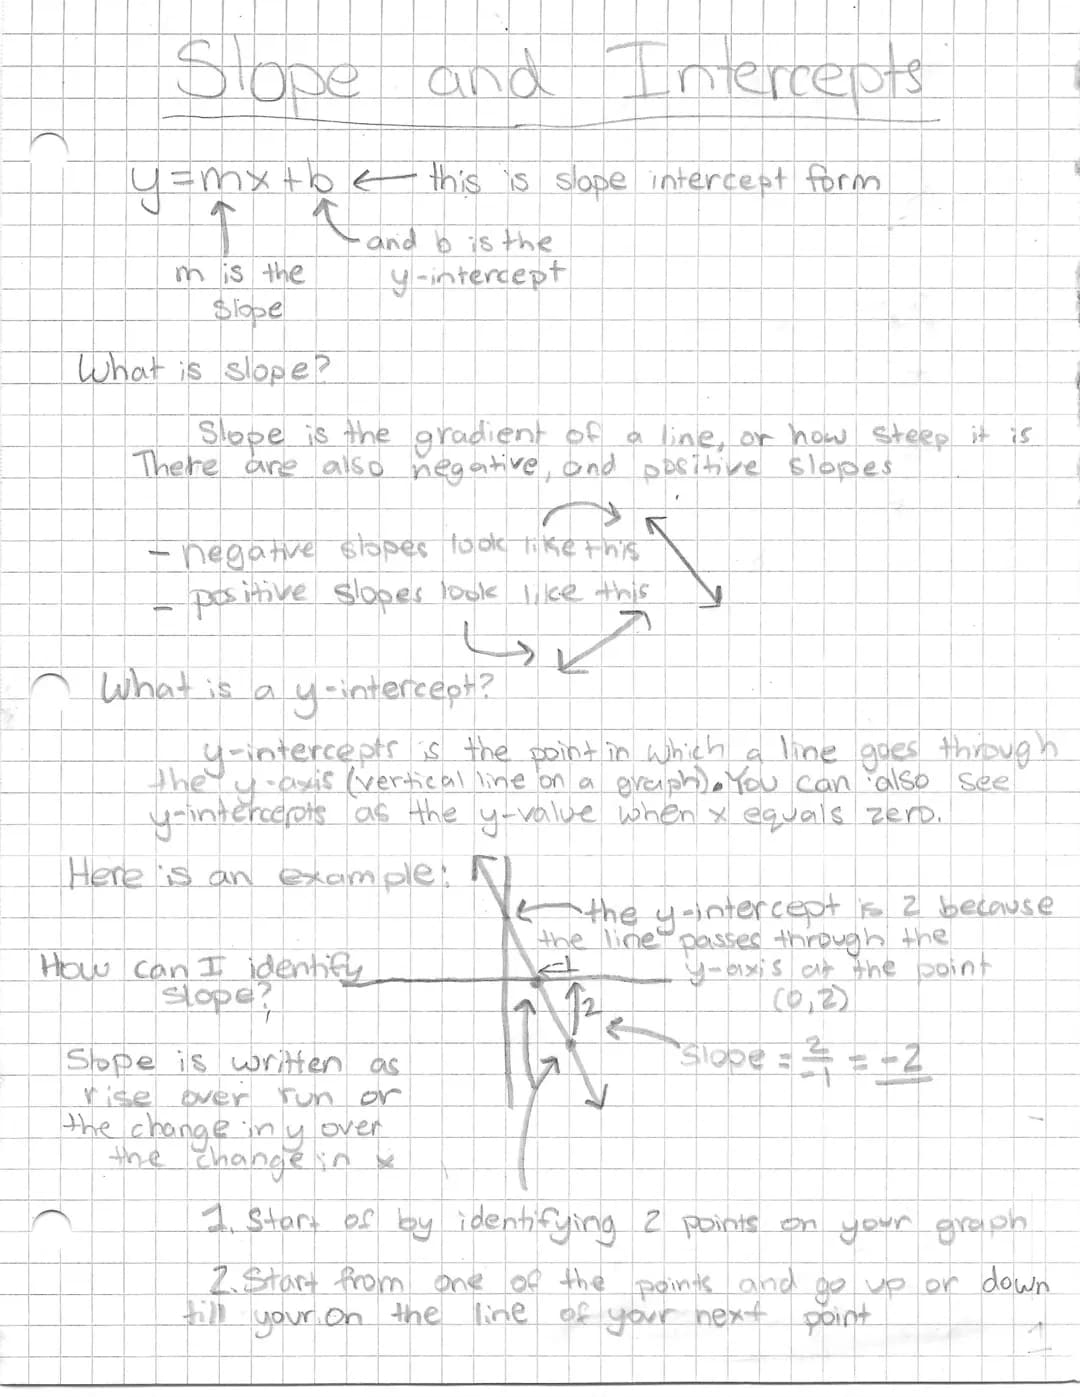 Slope and Intercepts
y=mx+b ← this is slope intercept form
and b is the
m is the
y-intercept
slope
What is slope?
Slope is the gradient of a line, or how steep it is
There are also negative, and positive slopes
- negative slopes look like this
- positive slopes look like this
What is a y-intercept?
y-intercepts is the point in which a line goes through
the y-axis (vertical line on a graph). You can also see
y-intercepts as the y-value when x equals zero.
Here is an example:
the y-intercept is 2 because
the line passes through the
y-axis at the point
(0,2)
How can I identify
slope?
-1
2
slope = 2/-1 = -2
Slope is written as
rise over run or
the change in y over
the change in x
1. Start of by identifying 2 points on your graph
2. Start from one of the points and go up or down
till your on the line of your next point
1